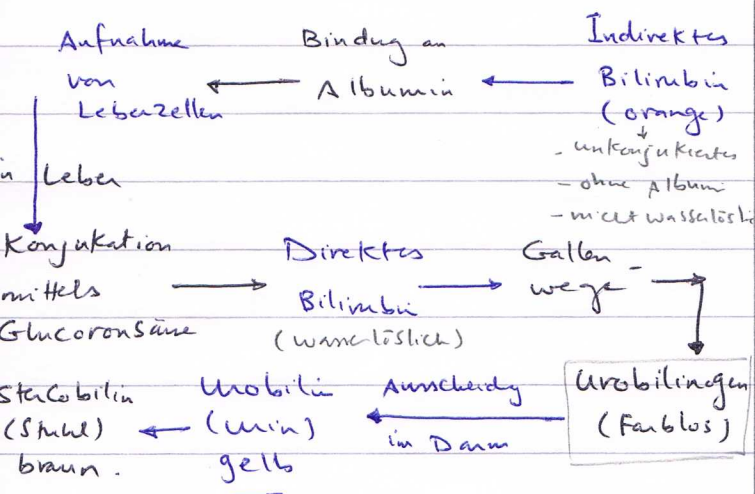 Indirektes
Bilirubin
(orange)
- unkonjukiertes
- ohne Albumi
- nicht wasserlösli
Bindug an
Albumin
Aufnahme
von
Leberzellen
in Leber
Konjukation
mittels
Glucoronsäure
Direktes
Bilirubin
(wasserlöslich)
Gallen-
wege
Urobilinogen
(Farblos)
Ausscheidg
im Darm
Urobilin
(Urin)
gelb
Stercobilin
(Stuhl)
braun.